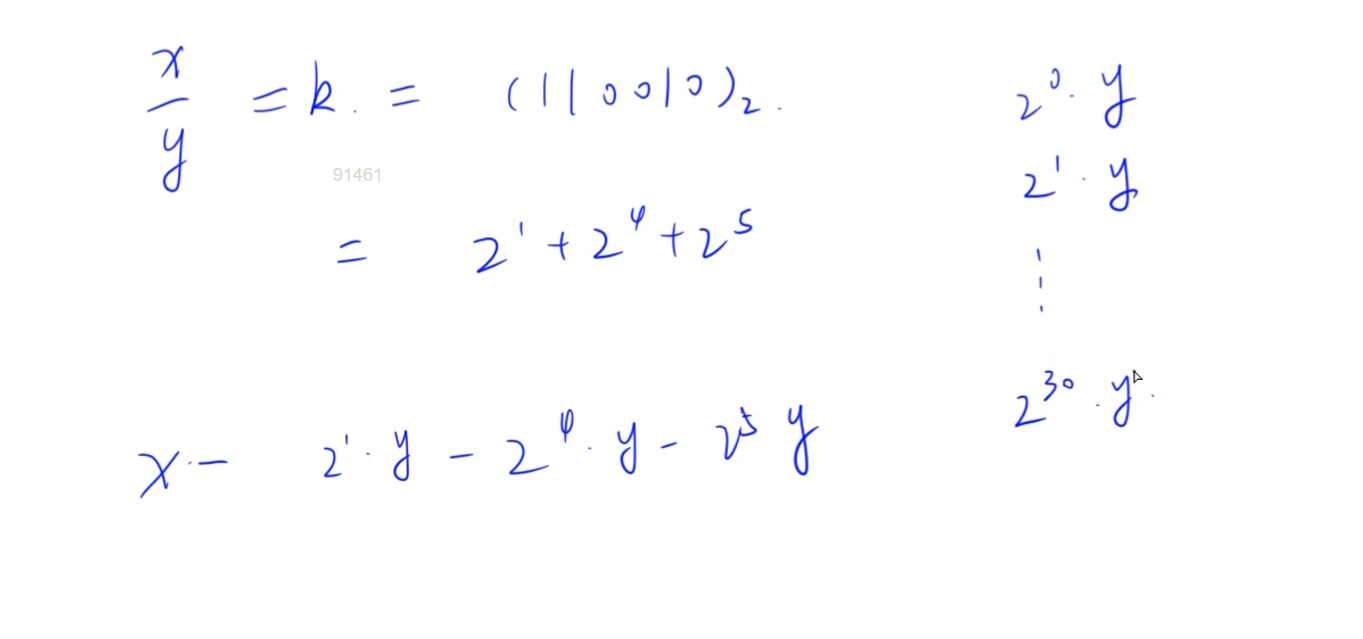 x/y = k. = (110010)₂.
91461
= 2¹ + 2⁴ + 2⁵
x - 2¹·y - 2⁴·y - 2⁵ y
2⁰·y
2¹·y
⋮
2³⁰·y.